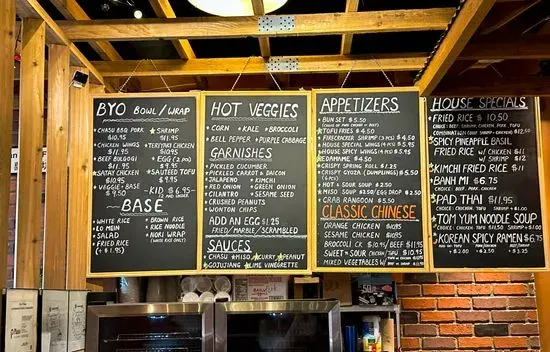 BYO BOWL/WRAP
CHASU BBQ PORK $11.95
CHICKEN WINGS $11.95
BEEF BULGOGI $11.95
SATAY CHICKEN $10.95
VEGGIE - BASE $9.50
SHRIMP $11.95
TERIYAKI CHICKEN $10.95
EGG (2 PCS) $9.95
SAUTEED TOFU $9.95
KID $6.95
BASE
WHITE RICE
LO MEIN
SALAD
FRIED RICE
(+ $1.95)
BROWN RICE
RICE NOODLE
NORI WRAP
(WHITE RICE ONLY)
HOT VEGGIES
CORN KALE BROCCOLI
BELL PEPPER PURPLE CABBAGE
GARNISHES
PICKLED CUCUMBER
PICKLED CARROT & DAIKON
JALAPENO KIMCHI
RED ONION GREEN ONION
CILANTRO SESAME SEED
CRUSHED PEANUTS
WONTON CHIPS
ADD AN EGG $1.25
FRIED/MARBLE/SCRAMBLED
SAUCES
CHASU MISO CURRY PEANUT
GOJUJIANG LIME VINEGRETTE
APPETIZERS
BUN SET $5.50
TOFU FRIES $4.50
FIRECRACKER SHRIMP $5.50
HOUSE SPECIAL WINGS
HOUSE SPICY WINGS
EDAMAME $4.50
CRISPY SPRING ROLL $1.25
CRISPY GYOZA (DUMPLINGS) $5.50
HOT & SOUR SOUP $2.50
MISO SOUP $2.50/EGG DROP $2.50
CRAB RANGOON $5.50
CLASSIC CHINESE
ORANGE CHICKEN $10.95
SESAME CHICKEN $10.95
BROCCOLI CK $10.95/BEEF $11.95
SWEET & SOUR CHICKEN/TOFU $10.95
MIXED VEGETABLES W/
HOUSE SPECIALS
FRIED RICE $10.50
CHOICE: BEEF, SHRIMP, CHICKEN, PORK TOFU
COMBINATION $12.50
SPICY PINEAPPLE BASIL
FRIED RICE W/ CHICKEN $11
W/ SHRIMP $12
KIMCHI FRIED RICE $11
BANH MI $6.75
CHOICE: BEEF, PORK, CHICKEN
PAD THAI $11.95
CHOICE: CHICKEN TOFU SHRIMP
TOM YUM NOODLE SOUP
KOREAN SPICY RAMEN $6.75